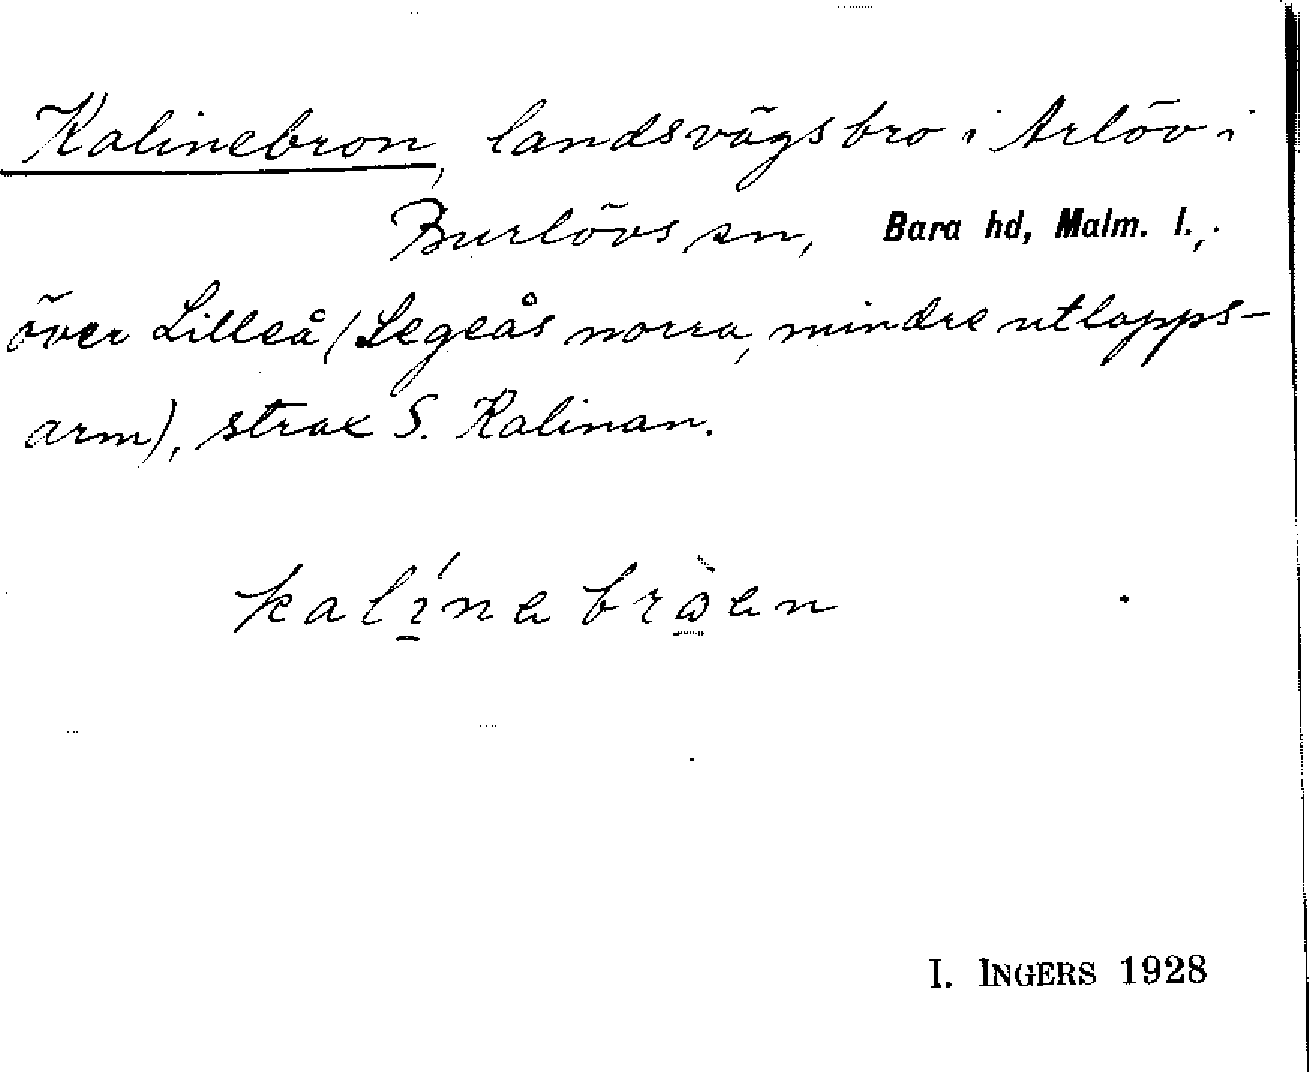 Kalinebron, landsvägsbro i Arlöv i
Burlövs sn, Bara hd, Malm. l.,
över Lilleå (Segeås norra, mindre utlopps-
arm), strax S. Kalinan.
kalínebròen
I. INGERS 1928